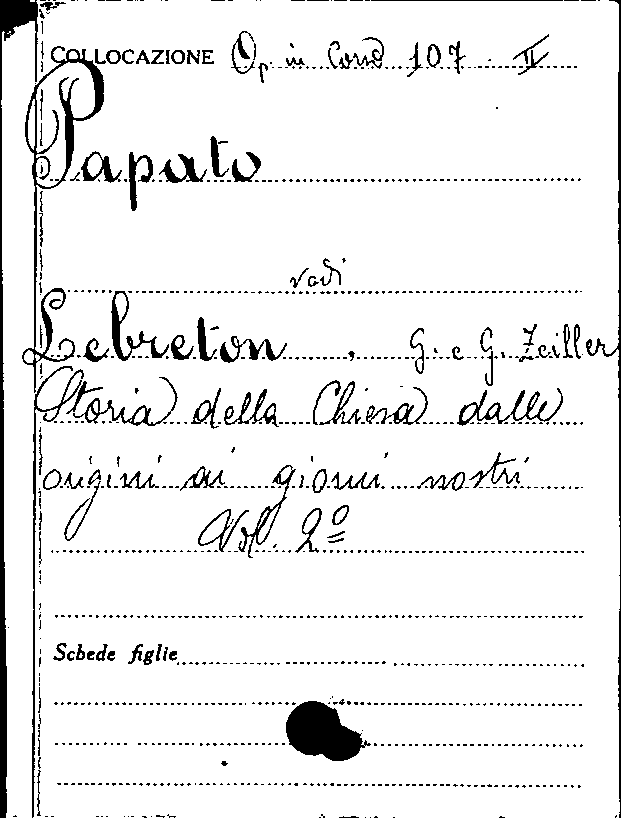 COLLOCAZIONE Op. in Corso 107. II
Papato
vedi
Lebreton, G. e G. Zeiller
Storia della Chiesa dalle
origini ai giorni nostri
Vol. 2º
Schede figlie